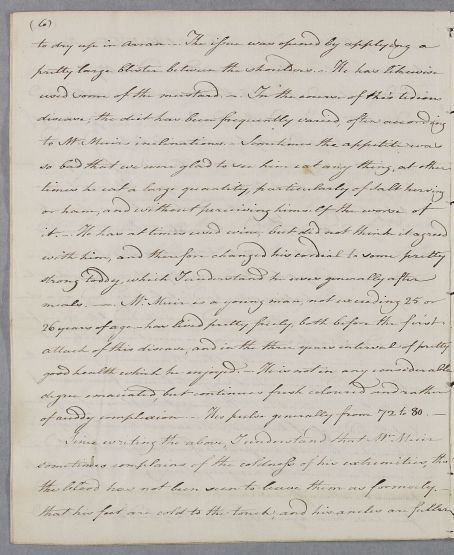 (6)
to dry up in Arran — The issue was opened by applying a
pretty large blister between the shoulders — He has likewise
used some of the mustard. — In the course of this tedious
disease, the diet has been frequently varied, often according
to Mr Muirs inclinations — Sometimes the appetite was
so bad that we were glad to see him eat any thing, at other
times he eat a large quantity, particularly of salt herring
or ham, and without perceiving himself the worse of
it. — He has at times used wine, but did not think it agreed
with him, and therefore changed his cordial to some pretty
strong Toddy, which I understand he uses generally after
meals. — Mr Muir is a young man, not exceeding 25 or
26 years of age — has lived pretty freely, both before the first
attack of this disease, and in the three years interval of pretty
good health which he enjoyed. — He is not in any considerable
degree emaciated but continues fresh coloured and rather
of a ruddy complexion — His pulse generally from 72 to 80. —
Since writing the above, I understand that Mr Muir
sometimes complains of the coldness of his extremities, tho
the blood has not been seen to leave them as formerly —
that his feet are cold to the touch, and his ancles are fuller